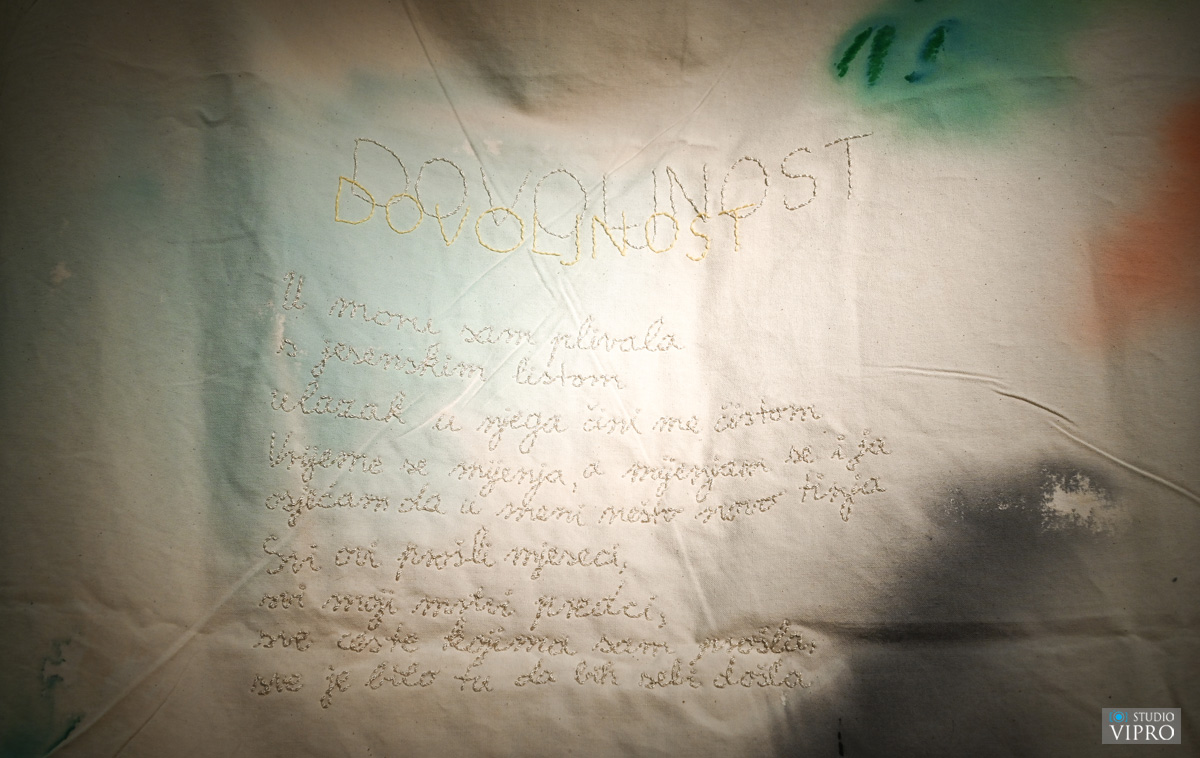 DOVOLJNOST
DOVOLJNOST
U moru sam plivala
s jesenskim listom
ulazak u njega čini me čistom
Vrijeme se mijenja, a mijenjam se i ja
osjećam da u meni nešto novo tinja
Svi ovi prošli mjeseci,
svi moji mrtvi preci,
sve ceste kojima sam prošla,
sve je bilo tu da bih sebi došla
STUDIO
VIPRO